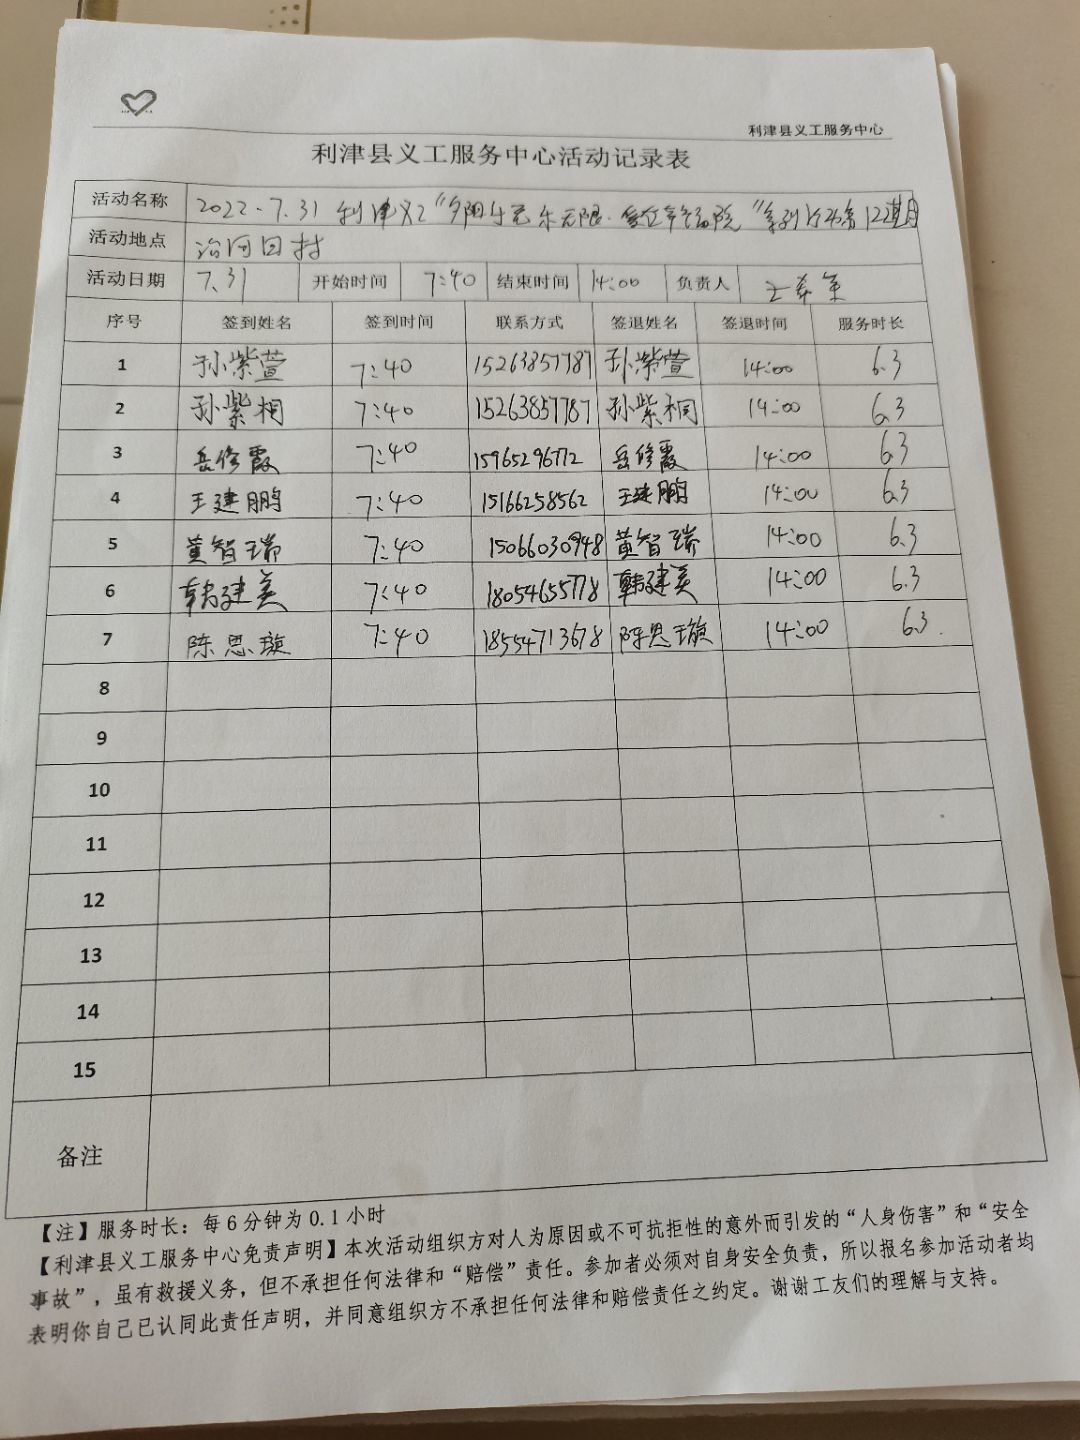 利津县义工服务中心
利津县义工服务中心活动记录表
活动名称 2022.7.31 利津义工“夕阳 无限 ”系列活动第122期
活动地点 村
活动日期 7.31 开始时间 7:40 结束时间 14:00 负责人 王
序号 签到姓名 签到时间 联系方式 签退姓名 签退时间 服务时长
1 孙紫萱 7:40 15263857787 孙紫萱 14:00 6.3
2 孙紫桐 7:40 15263857787 孙紫桐 14:00 6.3
3 岳修霞 7:40 15965296772 岳修霞 14:00 6.3
4 王建鹏 7:40 15166258562 王建鹏 14:00 6.3
5 黄智瑞 7:40 15066030948 黄智瑞 14:00 6.3
6 韩建美 7:40 18054655778 韩建美 14:00 6.3
7 陈思璇 7:40 18554713678 陈思璇 14:00 6.3
8
9
10
11
12
13
14
15
备注
【注】服务时长：每6分钟为0.1小时
【利津县义工服务中心免责声明】本次活动组织方对人为原因或不可抗拒性的意外而引发的“人身伤害”和“安全
事故”，虽有救援义务，但不承担任何法律和“赔偿”责任。参加者必须对自身安全负责，所以报名参加活动者均
表明你自己已认同此责任声明，并同意组织方不承担任何法律和赔偿责任之约定。谢谢工友们的理解与支持。